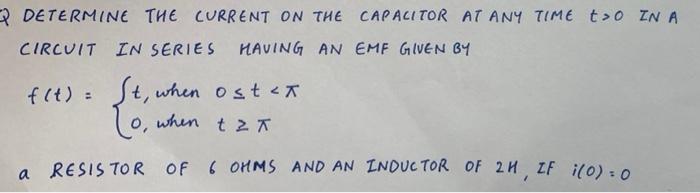 Q DETERMINE THE CURRENT ON THE CAPACITOR AT ANY TIME t>0 IN A
CIRCUIT IN SERIES HAVING AN EMF GIVEN BY
f(t) = { t, when 0 ≤ t < π
0, when t ≥ π
a RESISTOR OF 6 OHMS AND AN INDUCTOR OF 2H, IF i(0)=0